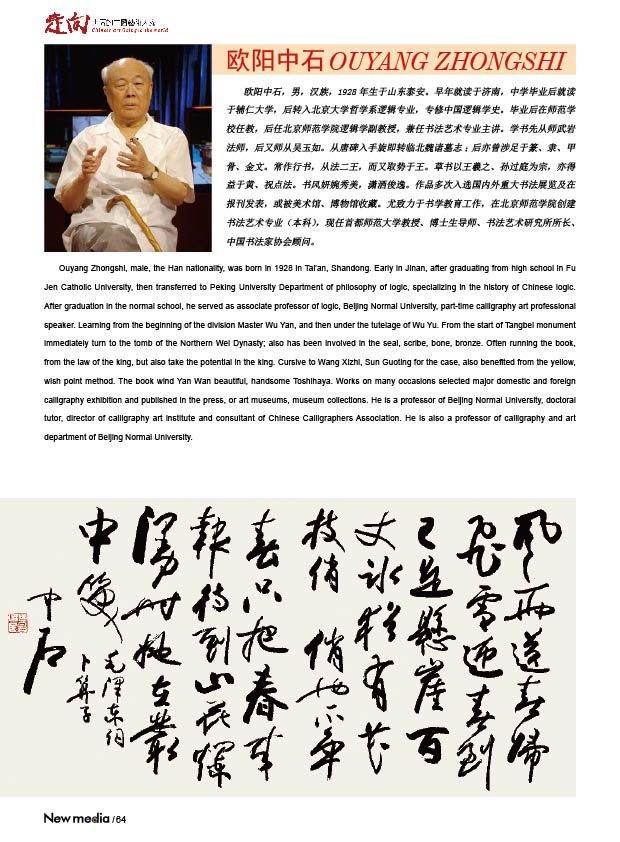 走向
Chinese art Going to the world
欧阳中石 OUYANG ZHONGSHI
欧阳中石，男，汉族，1928 年生于山东泰安。早年就读于济南，中学毕业后就读
于辅仁大学，后转入北京大学哲学系逻辑专业，专修中国逻辑学史。毕业后在师范学
校任教，后任北京师范学院逻辑学副教授，兼任书法艺术专业主讲。学书先从师武岩
法师，后又师从吴玉如。从唐碑入手旋即转临北魏诸墓志；后亦曾涉足于篆、隶、甲
骨、金文。常作行书，从法二王，而又取势于王。草书以王羲之、孙过庭为宗，亦得
益于黄、祝点法。书风妍婉秀美，潇洒俊逸。作品多次入选国内外重大书法展览及在
报刊发表，或被美术馆、博物馆收藏。尤致力于书学教育工作，在北京师范学院创建
书法艺术专业（本科），现任首都师范大学教授、博士生导师、书法艺术研究所所长、
中国书法家协会顾问。
Ouyang Zhongshi, male, the Han nationality, was born in 1928 in Tai'an, Shandong. Early in Jinan, after graduating from high school in Fu
Jen Catholic University, then transferred to Peking University Department of philosophy of logic, specializing in the history of Chinese logic.
After graduation in the normal school, he served as associate professor of logic, Beijing Normal University, part-time calligraphy art professional
speaker. Learning from the beginning of the division Master Wu Yan, and then under the tutelage of Wu Yu. From the start of Tangbei monument
immediately turn to the tomb of the Northern Wei Dynasty; also has been involved in the seal, scribe, bone, bronze. Often running the book,
from the law of the king, but also take the potential in the king. Cursive to Wang Xizhi, Sun Guoting for the case, also benefited from the yellow,
wish point method. The book wind Yan Wan beautiful, handsome Toshihaya. Works on many occasions selected major domestic and foreign
calligraphy exhibition and published in the press, or art museums, museum collections. He is a professor of Beijing Normal University, doctoral
tutor, director of calligraphy art institute and consultant of Chinese Calligraphers Association. He is also a professor of calligraphy and art
department of Beijing Normal University.
风雨送春归
飛雪迎春到
已是懸崖百
丈冰猶有花
枝俏俏也不争
春只把春来
報待到山花爛
漫时她在叢
中笑
毛澤东词
卜算子
中石
New media / 64